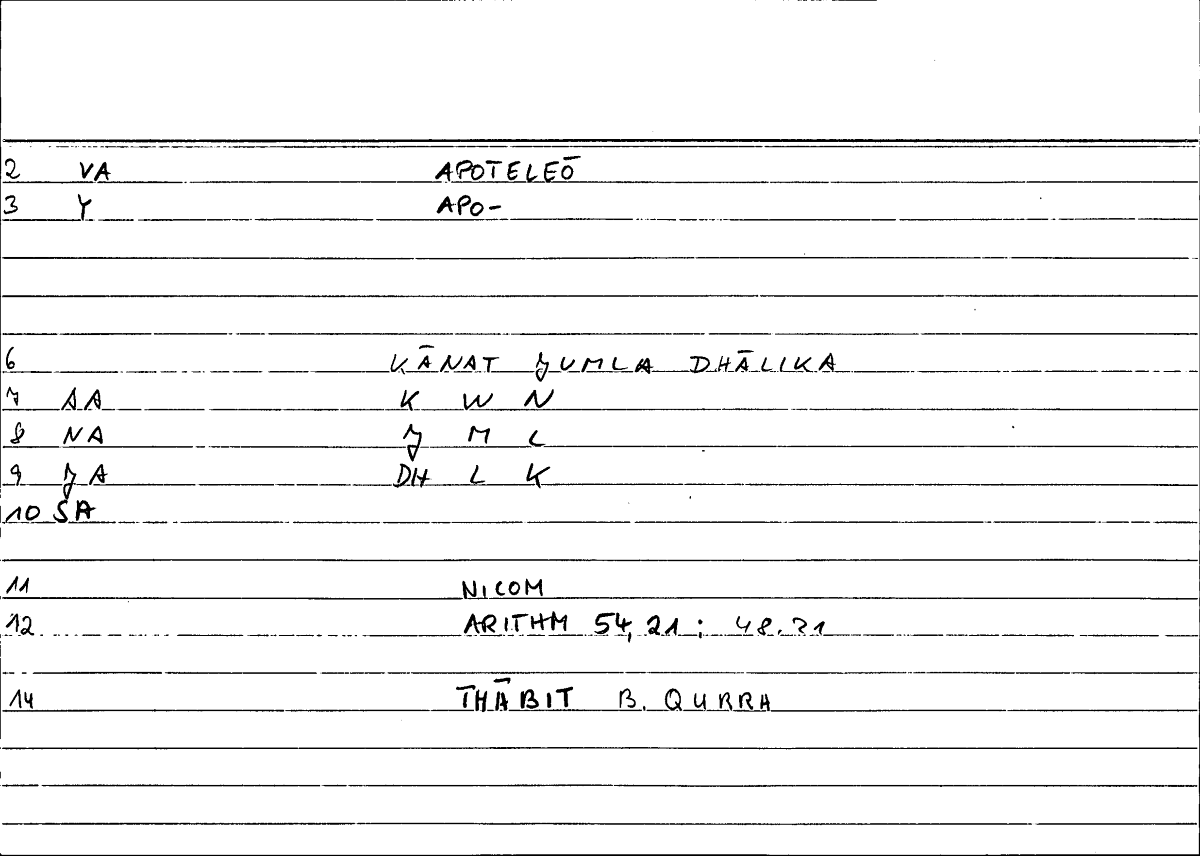 2 VA APOTELEŌ
3 Y APO-
6 KĀNAT JUMLA DHĀLIKA
7 AA K W N
8 NA J M L
9 JA DH L K
10 SA
11 NICOM
12 ARITHM 54,21 : 48.21
14 THĀBIT B. QURRA